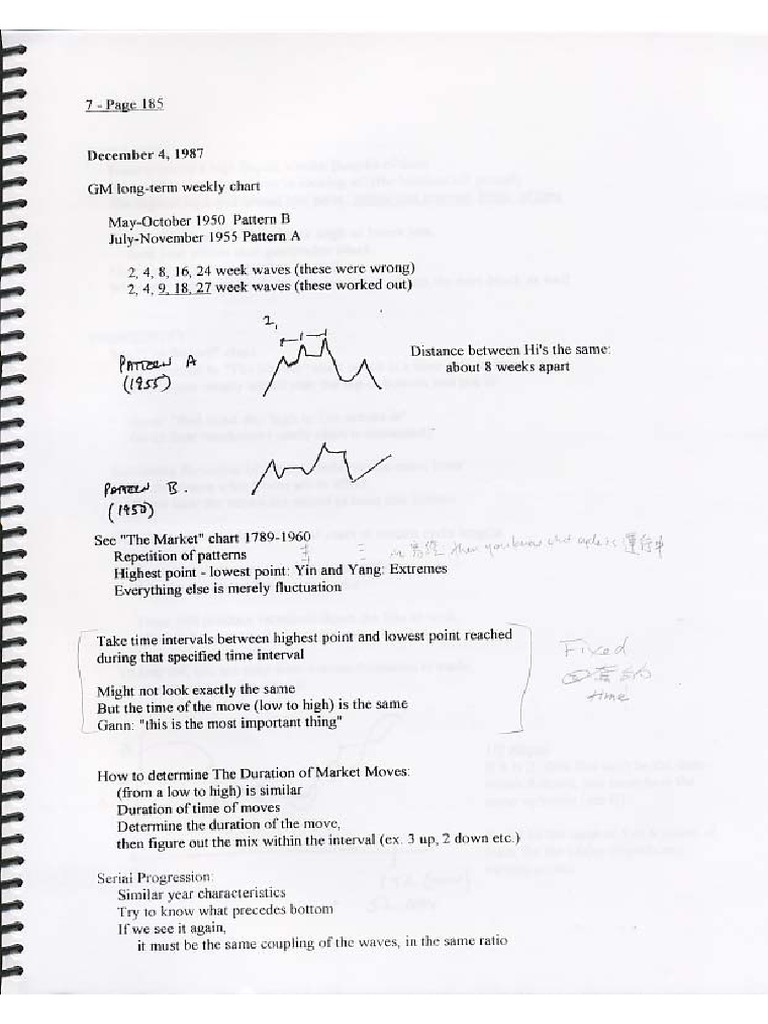 7 - Page 185
December 4, 1987
GM long-term weekly chart
May-October 1950 Pattern B
July-November 1955 Pattern A
2, 4, 8, 16, 24 week waves (these were wrong)
2, 4, 9, 18, 27 week waves (these worked out)
2,
PATTERN A
(1955)
Distance between Hi's the same:
about 8 weeks apart
PATTERN B.
(1950)
See "The Market" chart 1789-1960
Repetition of patterns
then you know what cycle is 運行中
Highest point - lowest point: Yin and Yang: Extremes
Everything else is merely fluctuation
Take time intervals between highest point and lowest point reached
during that specified time interval
Might not look exactly the same
But the time of the move (low to high) is the same
Gann: "this is the most important thing"
Fixed
time
How to determine The Duration of Market Moves:
(from a low to high) is similar
Duration of time of moves
Determine the duration of the move,
then figure out the mix within the interval (ex. 3 up, 2 down etc.)
Serial Progression:
Similar year characteristics
Try to know what precedes bottom
If we see it again,
it must be the same coupling of the waves, in the same ratio